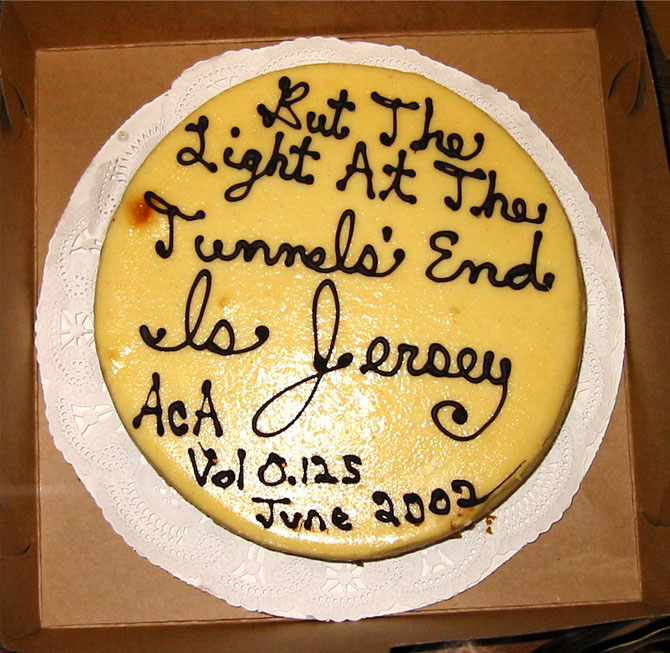 But The
Light At The
Tunnels' End
Is Jersey
AcA
Vol 0.125
June 2002